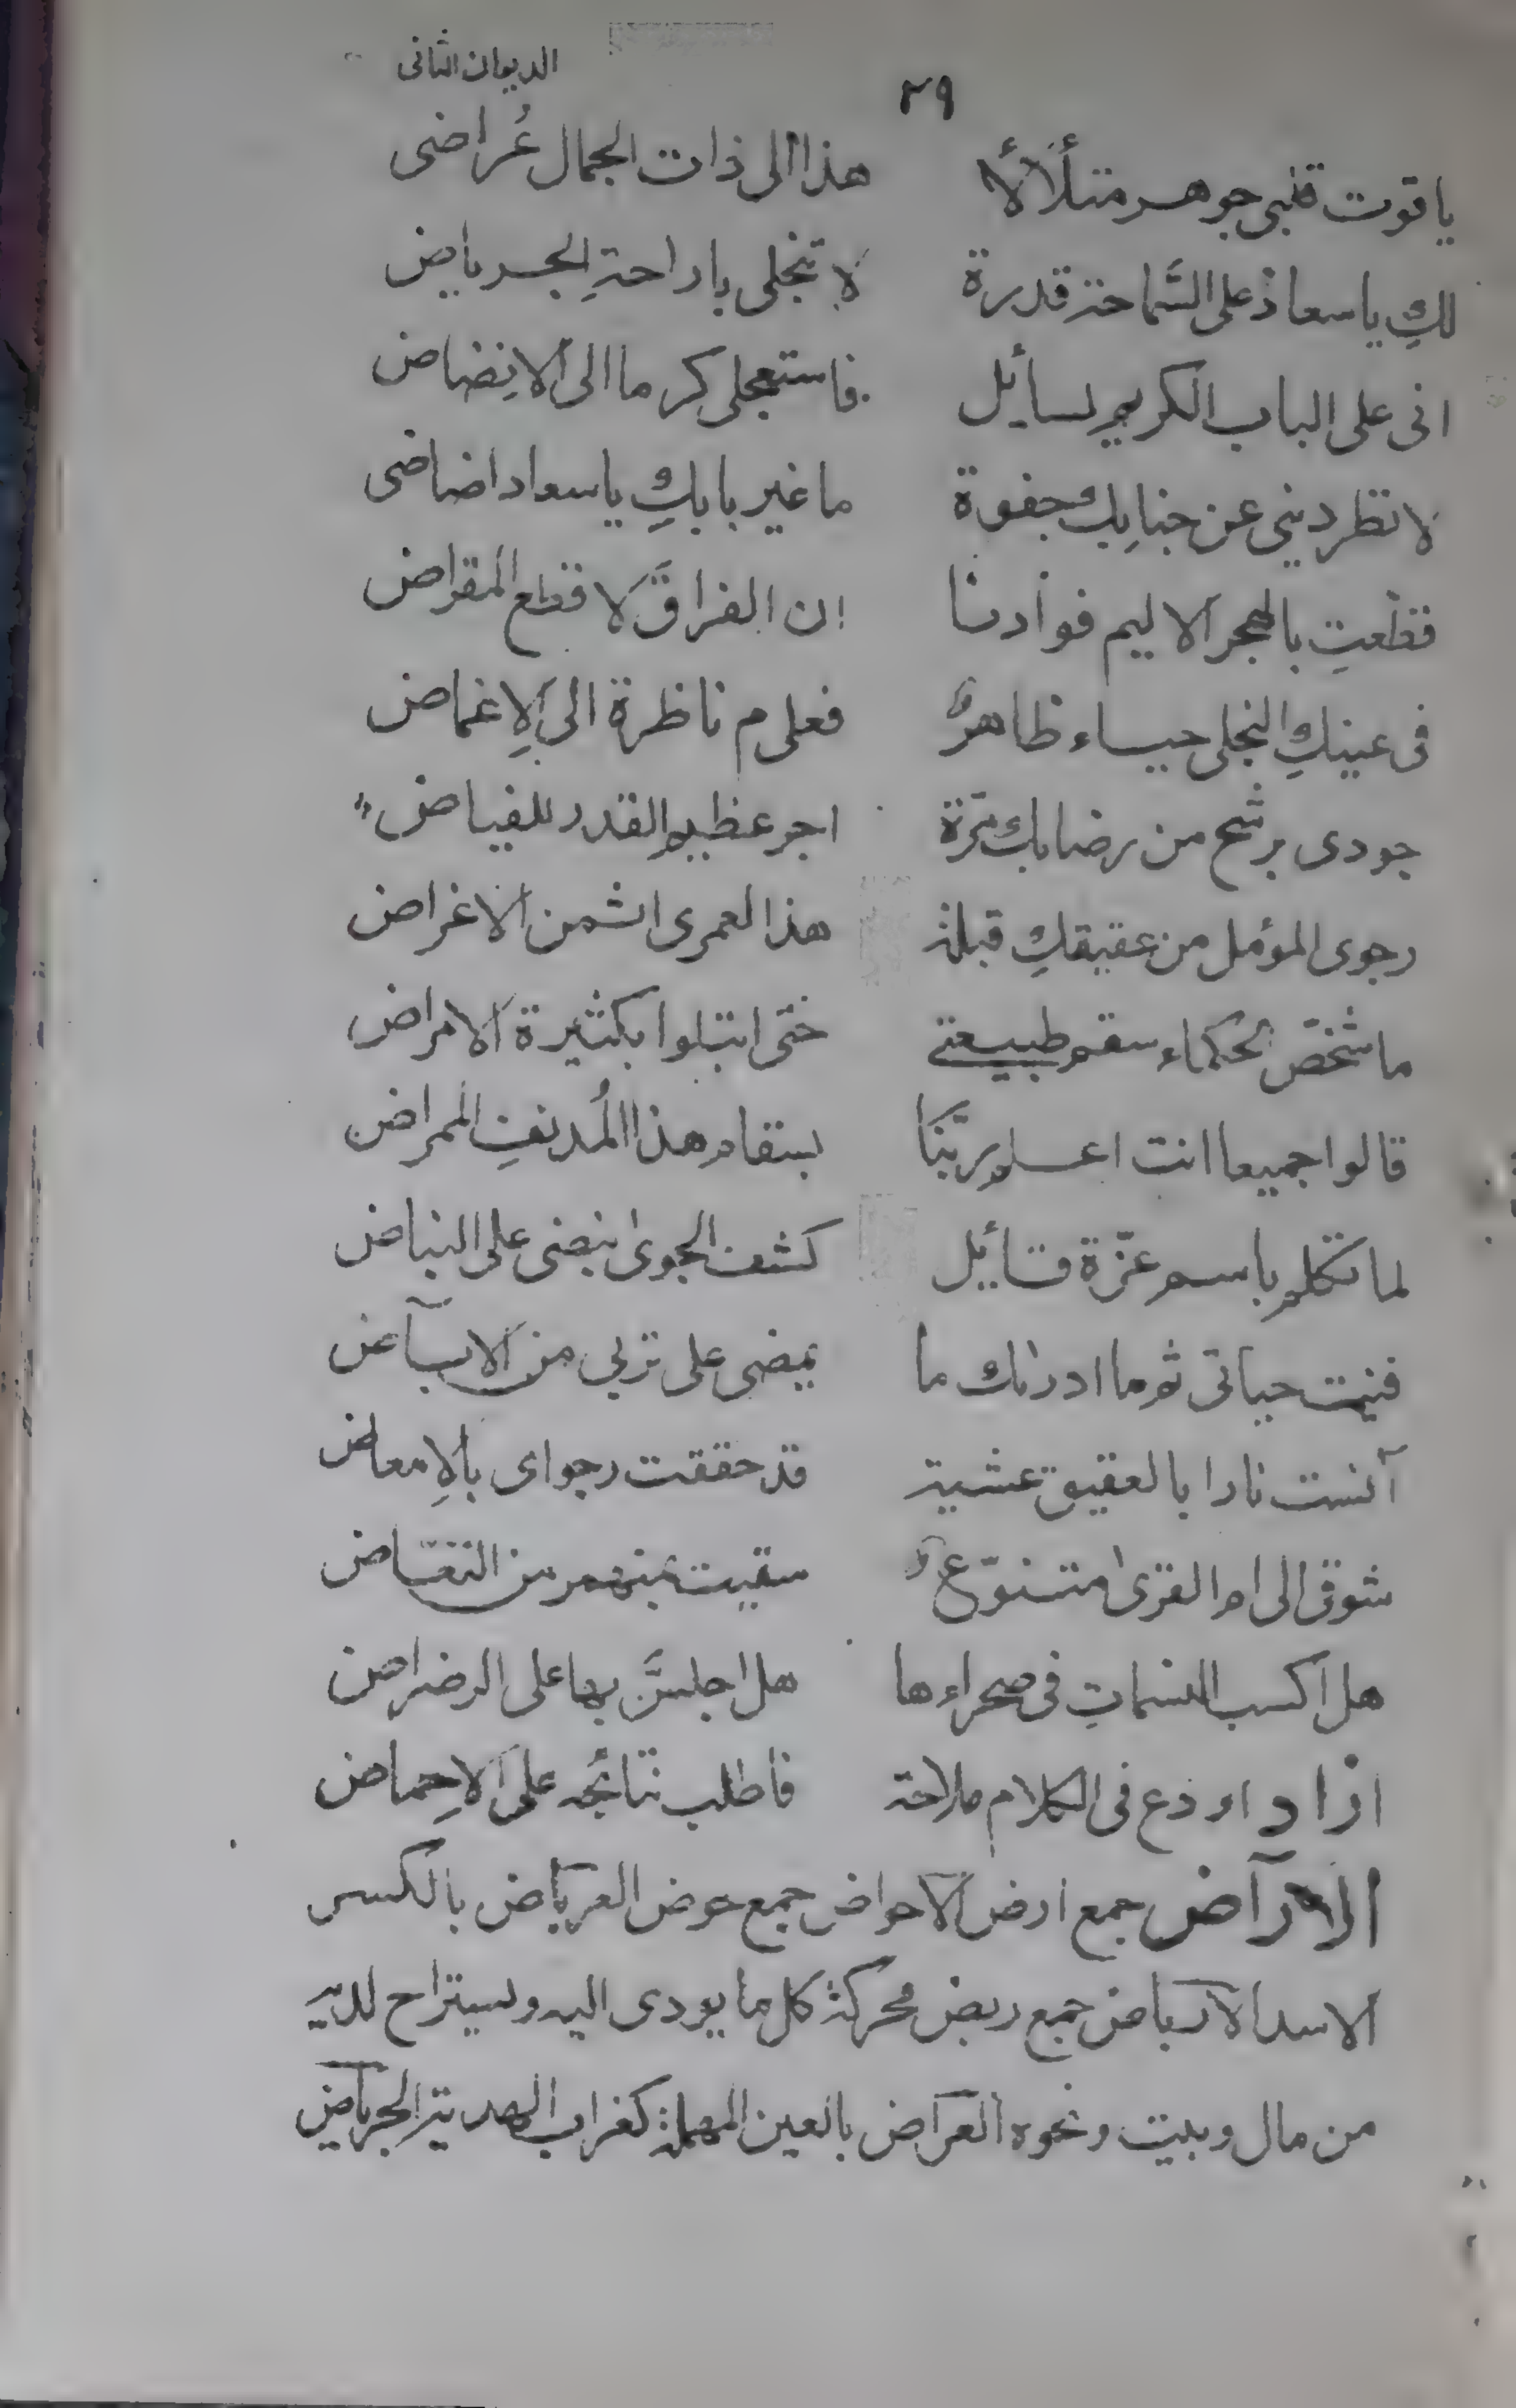 الديوان الثانى
٢٩
ياقوت قلبى جوهر متلألأ هذا الى ذات الجمال عُراضى
لكِ يا سعاد على السَّماحة قدرة لا تبخلى يا راحةِ الجرياض
انى على الباب الكريم لسأيل فاستعجلى كرما الى الانِضاض
لا تطردينى عن جنابِك جفوة ما غير بابكِ يا سعاد اضاضى
قطّعتِ بالهجر الاليم فوأدنا ان الفراقَ لا قطع المقراض
فى عينكِ النجلى حيساء ظاهرٌ فعلى م ناظرة الى الِاغماض
جودى برشح من رضابك مَرّة اجر عظيم القدر للفياض
رجوى المؤمل من عقيقكِ قبلة هذا لعمرى اثمن الاغراض
ما شخّص الحكماء سقم طبيعتى حتّى ابتلوا بكثيرة الامراض
قالوا جميعا انت اعلم ربَّنَا بسقام هذا المُدنفِ الممراض
لما تكلم باسم عزّة قأيل كشف الجوى نبضى على النباض
فنيت حياتى ثم ما ادراك ما يمضى على تربى من الابآض
آنست نارا بالعقيق عشية قد حققت رجواى بالِامعاض
شوقى الى ام القرى متنوّعٌ سقيت بنهمر من النغّاض
هل اكسب النسماتِ فى صحراءها هل اجلسَنَّ بها على الرضراض
ازاد اودع فى الكلام ملاحة فاطلب نتائجه على الِاحماض
الارآض جمع ارض الاحواض جمع حوض العرباض بالكسر
الاسد الارباض جمع ربض محركة كل ما يودى اليه ويستراح لديه
من مال وبيت ونحوه العراض بالعين المهملة كغراب الهدية الجرياض